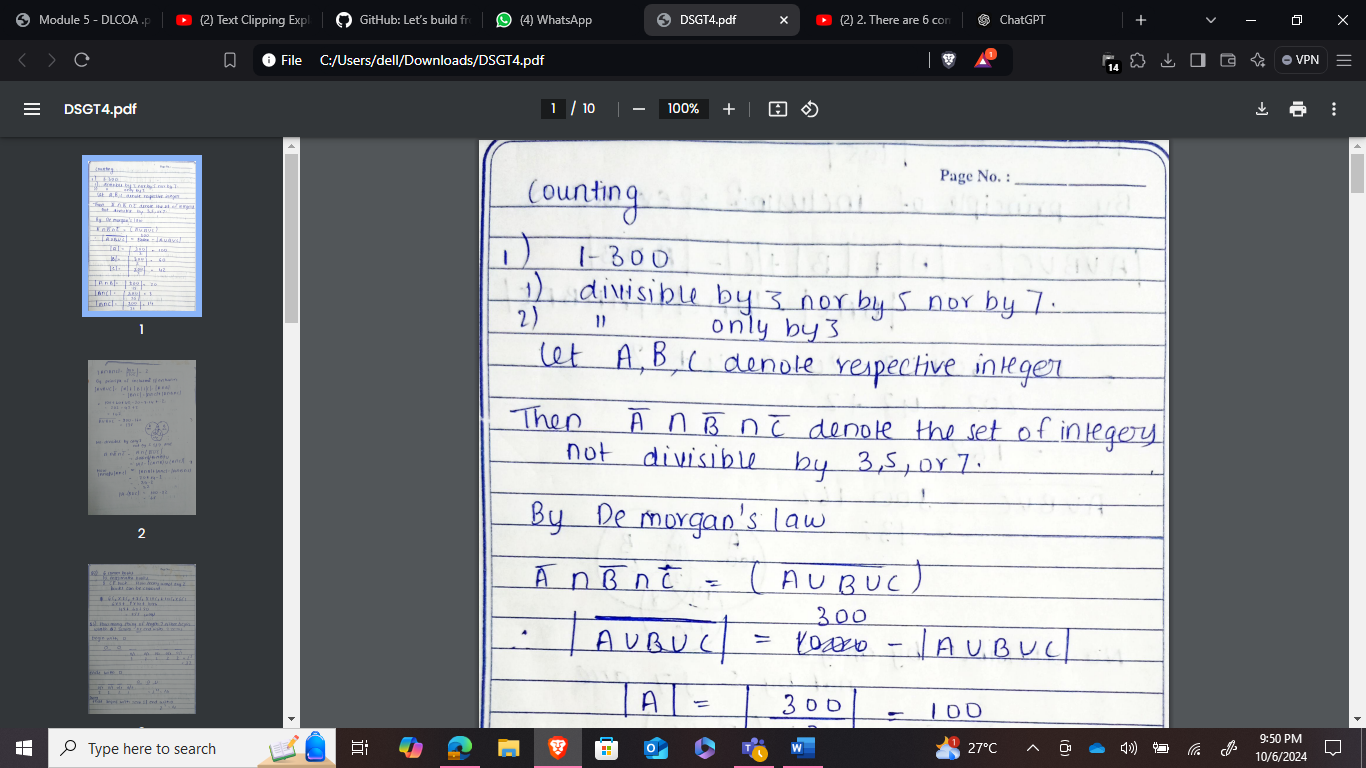 Module 5 - DLCOA .p
(2) Text Clipping Expl
GitHub: Let's build fr
(4) WhatsApp
DSGT4.pdf
(2) 2. There are 6 com
ChatGPT
File C:/Users/dell/Downloads/DSGT4.pdf
1
14
VPN
DSGT4.pdf
1 / 10
100%
Page No. :
Counting
1) 1-300
1) divisible by 3 nor by 5 nor by 7.
2) " only by 3
Let A, B, C denote respective integer
Then A̅ ∩ B̅ ∩ C̅ denote the set of integers
not divisible by 3,5, or 7.
By De morgan's law
A̅ ∩ B̅ ∩ C̅ = (A̅ ∪ B̅ ∪ C̅)
300
∴ |A̅ ∪ B̅ ∪ C̅| = - |A ∪ B ∪ C|
|A| = | 300 | = 100
1
2
Type here to search
1
27°C
9:50 PM
10/6/2024